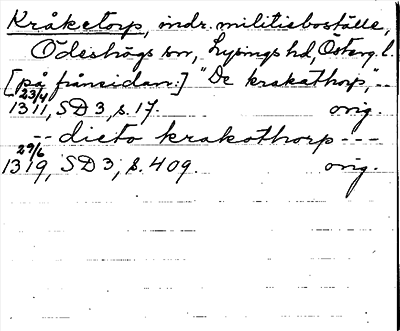 Kråketorp, indr. militieboställe,
Ödeshögs sn, Lysings hd, Österg. l.
[på frånsidan:] "De krakathorp", --
23/4
1311, SD 3, s. 17. orig.
-- dicto krakathorp ---
29/6
1319, SD 3, s. 409. orig.